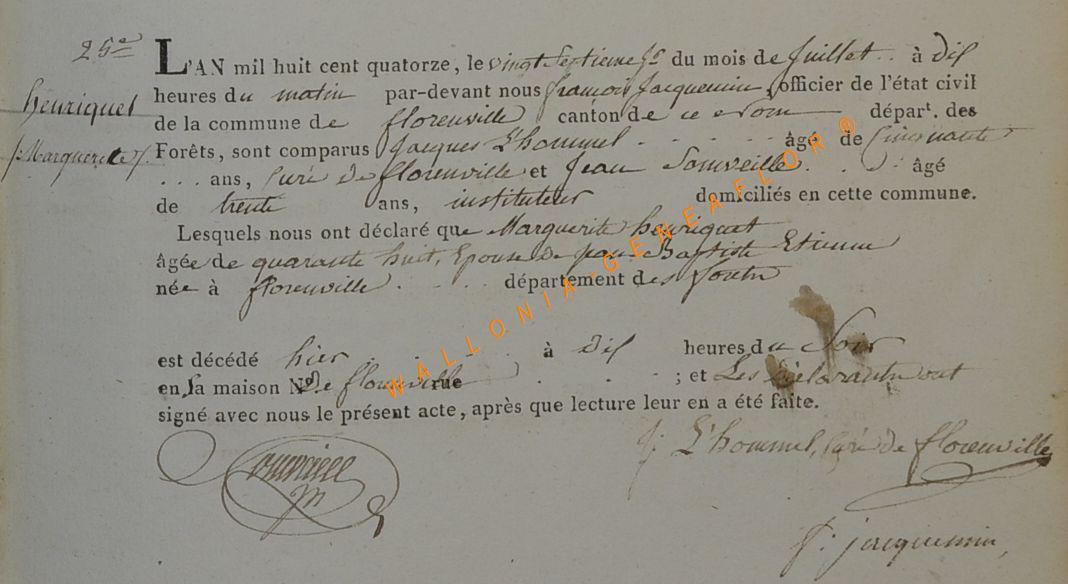 25e
Henriquet
/:Marguerite:/
L'AN mil huit cent quatorze, le vingt Septieme Jr du mois de Juillet .. à Dix
heures du matin par-devant nous françois Jacquemin, officier de l'état civil
de la commune de florenville canton de ce nom départ. des
Forêts, sont comparus Jacques L'hommel . . . . . âgé de Cinquante
. . . ans, Curé de florenville et Jean Somveille . . . âgé
de trente ans, instituteur domiciliés en cette commune.
Lesquels nous ont déclaré que Marguerite henriquet
âgée de quarante huit, Epouse de jean Baptiste Etienne
née à florenville . . . . département des forêts
est décédé hier . . . . . à Dix heures du Soir
en sa maison No De florenville rue . . . . ; et Les Déclarants ont
signé avec nous le présent acte, après que lecture leur en a été faite.
J: L'hommel, Curé de florenville
Somveille
f: jacquemin,
WALLONIA-GENEAFLOR ®